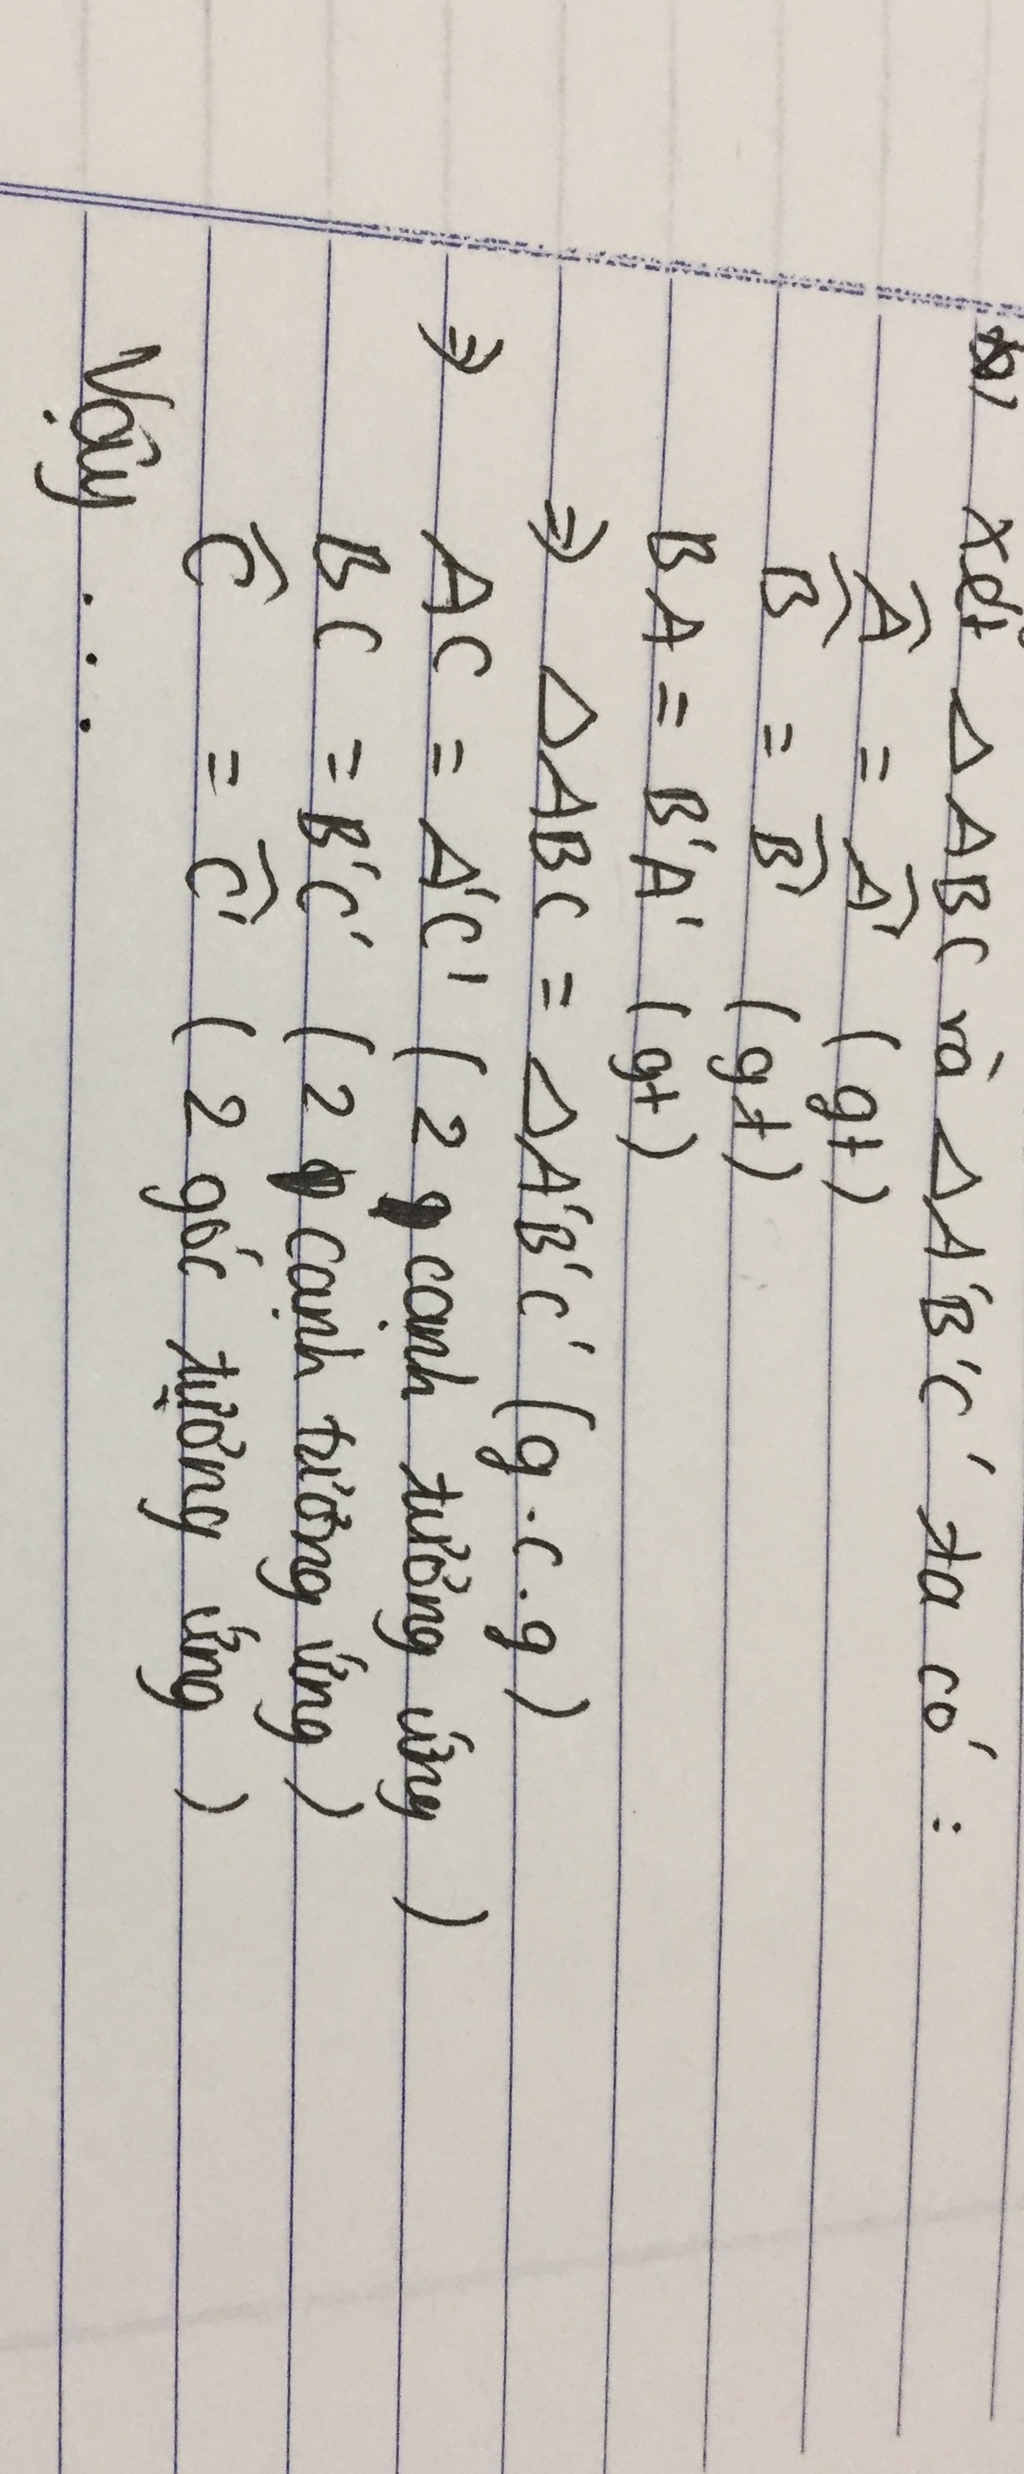 b) Xét ΔABC và ΔA'B'C' ta có :
Â = Â' (gt)
B̂ = B̂' (gt)
BA = B'A' (gt)
⇒ ΔABC = ΔA'B'C' (g.c.g)
⇒ AC = A'C' (2 cạnh tương ứng)
BC = B'C' (2 cạnh tương ứng)
Ĉ = Ĉ' (2 góc tương ứng)
Vậy ...